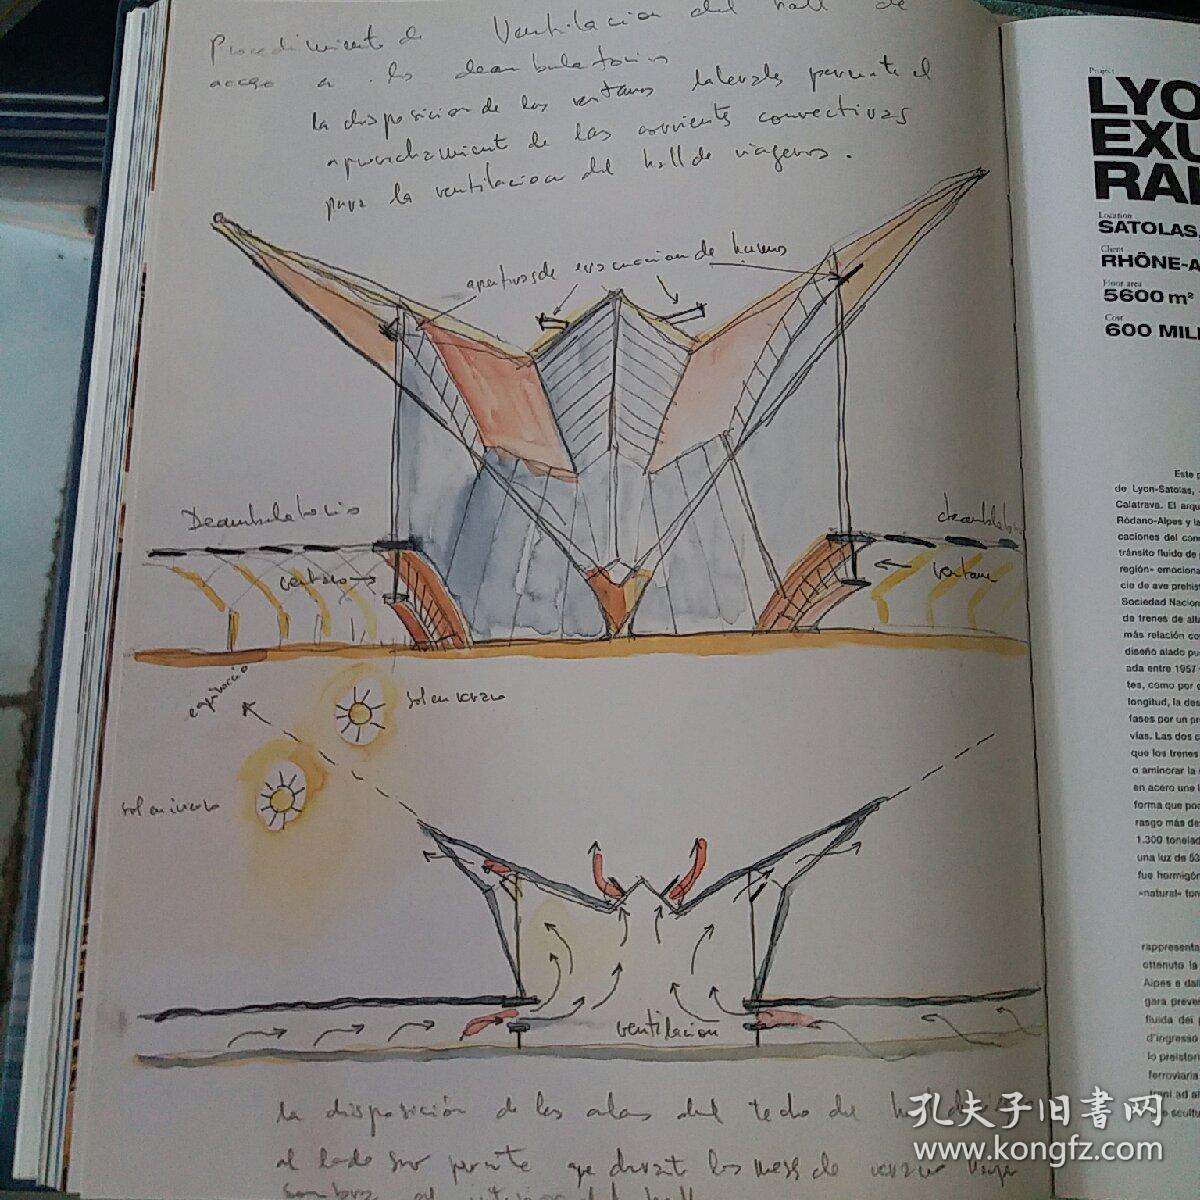 Procedimiento de Ventilacion del hall de
acceso a los deambulatorios
la disposicion de las ventanas laterales permite el
aprovechamiento de las corrientes convectivas
para la ventilacion del hall de viageros.
aperturas de evacuacion de humos
Deambulatorio
deambulato
ventana
ventana
sol en verano
sol en invierno
ventilacion
la disposición de las alas del techo del hall
al lado sur permite que durant los meses de verano haya
sombra al interior del hall
Project
LYO
EXU
RAI
Location
SATOLAS,
Client
RHÔNE-A
Floor area
5600 m²
Cost
600 MILI
Este p
de Lyon-Satolas,
Calatrava. El arqu
Ródano-Alpes y la
caciones del cons
tránsito fluido de
región» emociona
cie de ave prehist
Sociedad Nacion
de trenes de alta
más relación co
diseño alado pu
ada entre 1957
tes, como por e
longitud, la des
fases por un pr
vías. Las dos c
que los trenes
a aminorar la
en acero une l
forma que pod
rasgo más des
1.300 tonelad
una luz de 53
fue hormigón
«natural» ton
rappresenta
ottenuto la
Alpes e dall
gara preve
fluida dei
d'ingresso
lo preistor
ferroviaria
treni ad al
scultu
孔夫子旧書网
www.kongfz.com